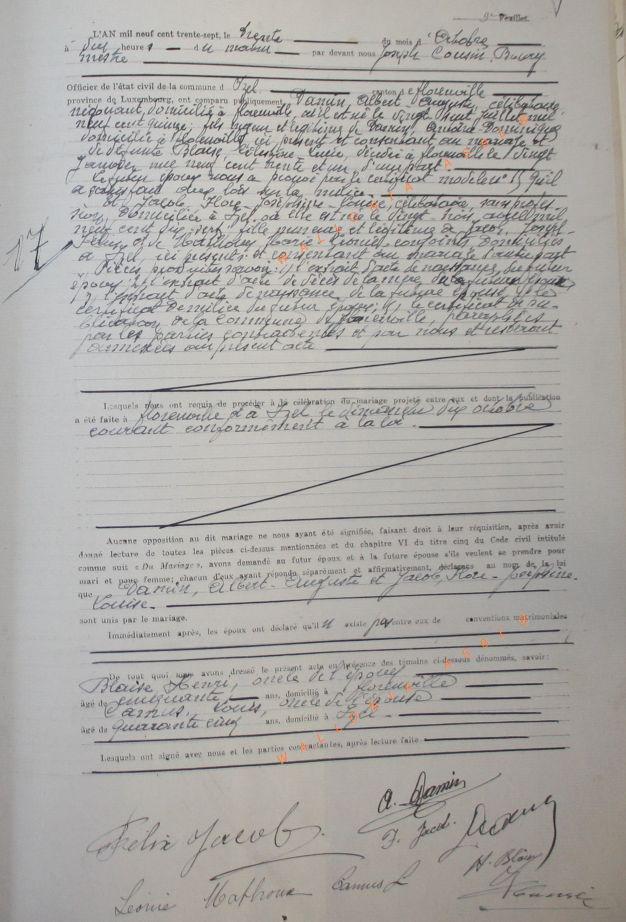 9e Feuillet.
L'AN mil neuf cent trente-sept, le trente du mois d'octobre
à dix heures du matin par devant nous Joseph Cousin, Bourg
mestre
Officier de l'état civil de la commune d'Izel, canton de Florenville
province du Luxembourg, ont comparu publiquement, Damin, Albert Auguste, célibataire
négociant, domicilié à Florenville, où il est né le vingt sept juillet mil
neuf cent quinze; fils majeur et légitime de Damin,
domicilié à Florenville, ici présent et consentant au mariage et
de défunte Blaise, Célestine Lucie, décédée à Florenville le vingt
janvier mil neuf cent trente et un, d'une part
Le futur époux nous a prouvé par le certificat modèle n° 15 qu'il
a satisfait aux lois sur la milice.
et Jacob, Flore-Joséphine-Louise, célibataire, sans profes-
sion, domiciliée à Izel, où elle est née le vingt-trois avril mil
neuf cent dix sept, fille mineure et légitime de Jacob,
Félix, et de Mathoux, Marie Léonie, conjoints, domiciliés
à Izel, ici présents et consentant au mariage, d'autre part
Pièces produites savoir: 1° extrait d'acte de naissance du futur
époux, 2° extrait d'acte de décès de la mère du futur époux,
3° extrait d'acte de naissance de la future épouse,
certificat de milice du futur époux, 5° le certificat de pu-
blication de la commune de Florenville paraphés
par les parties contractantes et par nous et resteront
annexées au présent acte
17
Lesquels nous ont requis de procéder à la célébration du mariage projeté entre eux et dont la publication
a été faite à Florenville et à Izel le dimanche dix octobre
courant conformément à la loi.
Aucune opposition au dit mariage ne nous ayant été signifiée, faisant droit à leur réquisition, après avoir
donné lecture de toutes les pièces ci-dessus mentionnées et du chapitre VI du titre cinq du Code civil intitulé
comme suit « Du Mariage », avons demandé au futur époux et à la future épouse s'ils veulent se prendre pour
mari et pour femme; chacun d'eux ayant répondu séparément et affirmativement, déclarons au nom de la loi
que Damin, Albert-Auguste et Jacob, Flore-Joséphine-
Louise
sont unis par le mariage.
Immédiatement après, les époux ont déclaré qu'il n'existe pas entre eux de conventions matrimoniales
De tout quoi nous avons dressé le présent acte en présence des témoins ci-dessous dénommés, savoir:
Blaise Henri, oncle de l'époux
âgé de cinquante ans, domicilié à Florenville
Camus, Louis, oncle de l'épouse
âgé de quarante cinq ans, domicilié à Izel
Lesquels ont signé avec nous et les parties contractantes, après lecture faite
A. Damin
Félix Jacob
F. Jacob
Léonie Mathoux
Camus L
H. Blaise